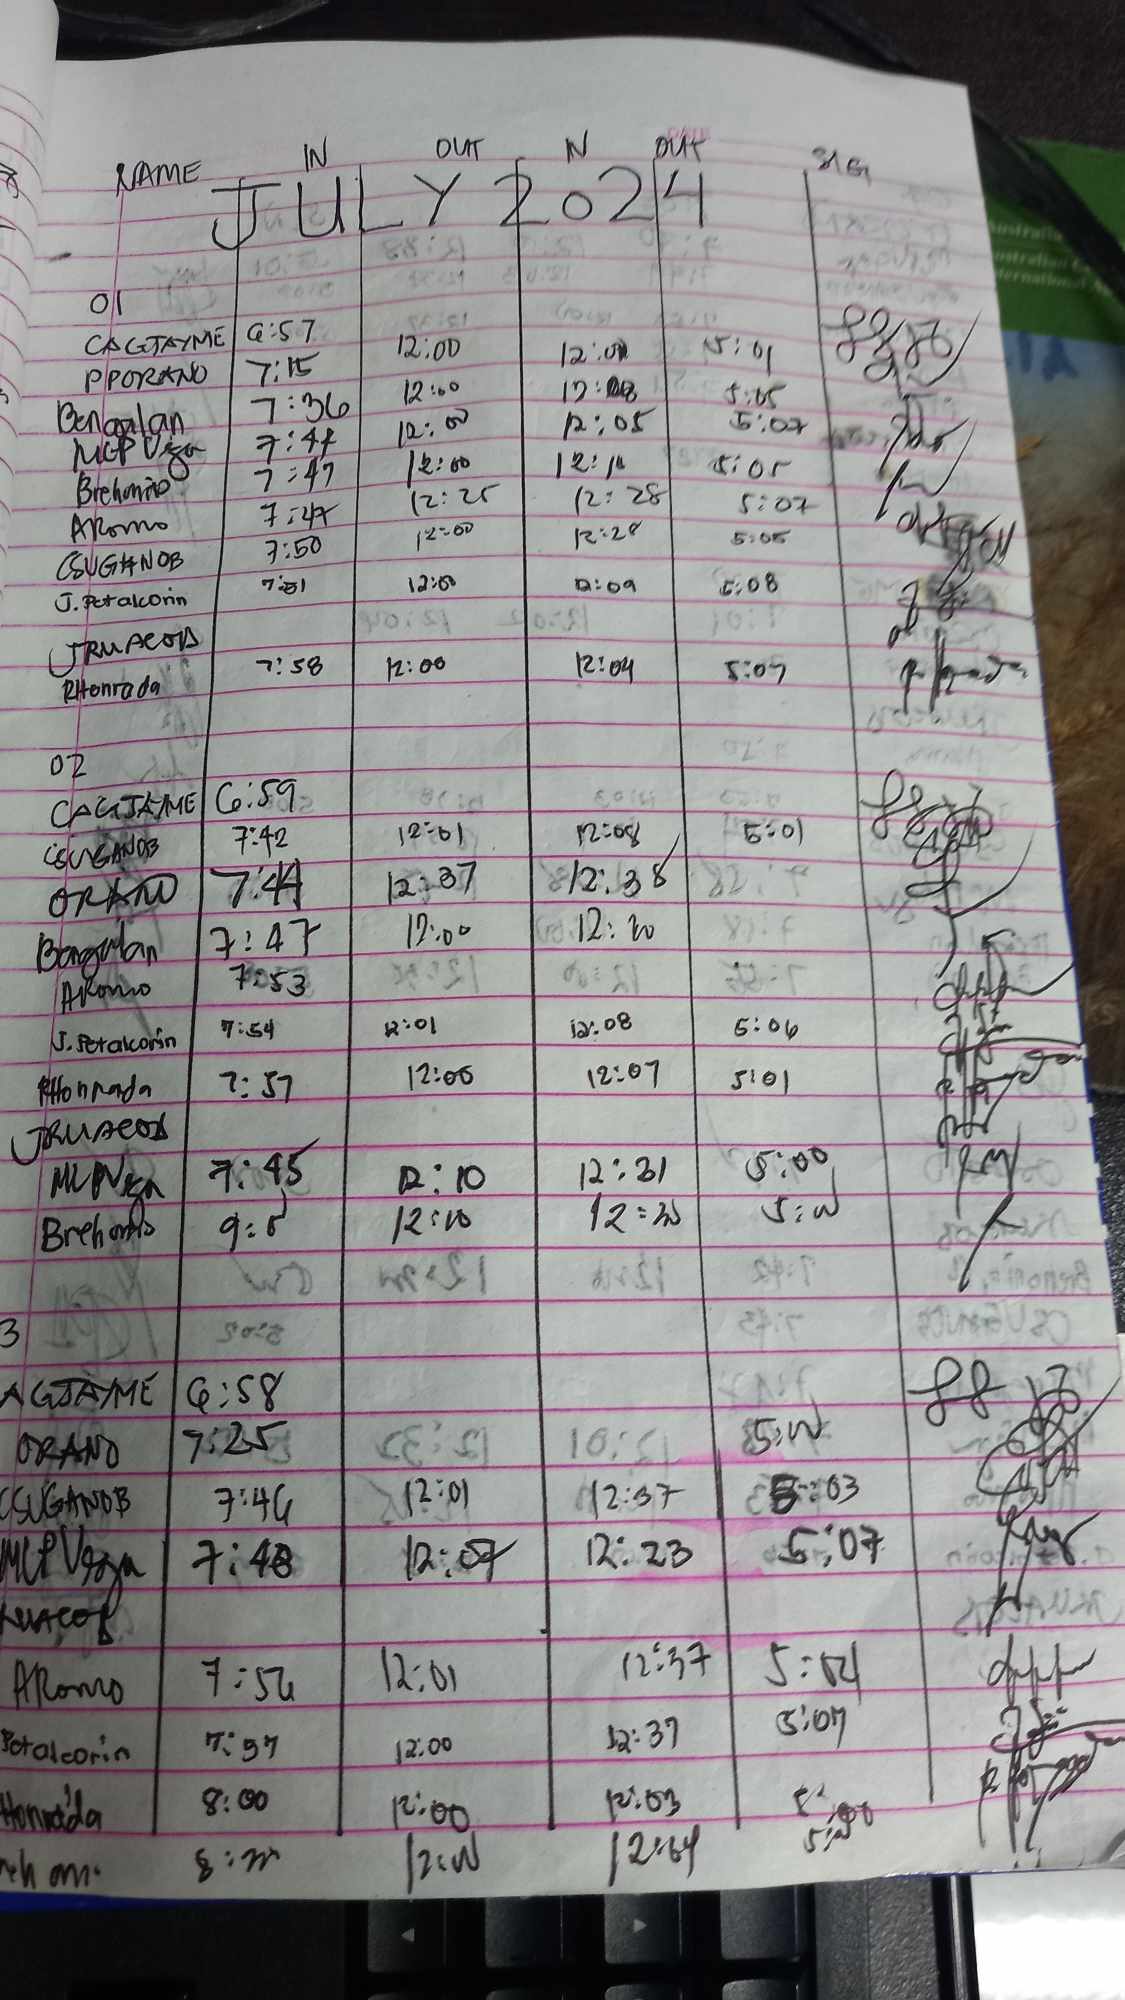 NAME IN OUT IN OUT SIG
JULY 2024
01
CAGJAYME 6:57
PPORANO 7:15 12:00 12:01 5:01
Bengulan 7:36 12:00 12:08 5:05
MLPVega 7:44 12:00 12:05 5:07
Brehonio 7:47 12:00 12:10 5:05
ARomo 7:47 12:25 12:28 5:07
CSUGANOB 7:50 12:00 12:28 5:05
J. Petalcorin 7:51 12:00 12:09 5:08
JRUACOB
RHonrada 7:58 12:00 12:04 5:07
02
CAGJAYME 6:59
CSUGANOB 7:42 12:01 12:08 5:01
ORANO 7:44 12:37 12:38
Bengulan 7:47 12:00 12:20
ARomo 7:53
J. Petalcorin 7:54 12:01 12:08 5:06
RHonrada 7:57 12:00 12:07 5:01
JRUACOB
MLPVega 7:45 12:10 12:31 5:00
Brehonio 12:10
3
AGJAYME 6:58
ORANO 7:25
CSUGANOB 7:46 12:01 12:37 5:03
MLPVega 7:48 12:07 12:23 5:07
RUACOB
ARomo 7:56 12:01 12:37 5:04
Petalcorin 7:57 12:00 12:37 5:07
Honrada 8:00 12:00 12:03 5:00